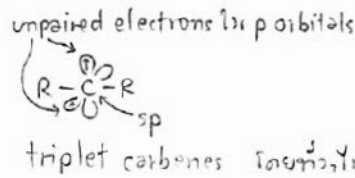 unpaired electrons ใน p orbitals
R-C-R
sp
triplet carbenes โดยทั่วไป